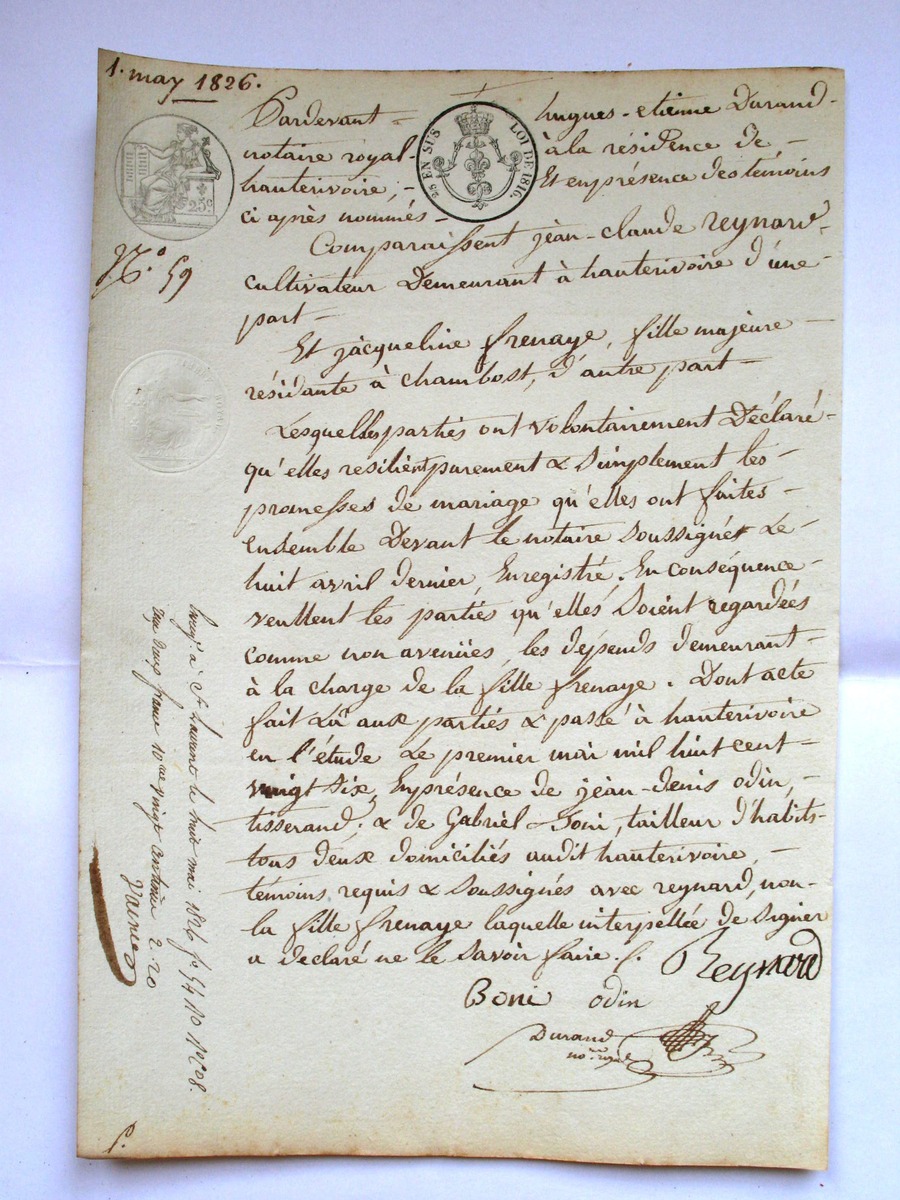 1. may 1826.
Pardevant hugues-etienne Durand-
notaire royal à la résidence de -
hauterivoire ; - Et en présence des témoins
ci après nommés -
25 EN SUS LOI DE 1816.
25c
N.o 59
Comparaissent jèan-claude reynard
cultivateur Demeurant à hauterivoire d'une-
part-
Et jàcqueline frenaye, fille majeure-
résidante à chambost, d'autre part-
Lesquelles parties ont volontairement Déclaré-
qu'elles resilient purement & Simplement les-
promesses de mariage qu'elles ont faites-
ensemble Devant le notaire soussigné Le-
huit avril dernier, Enregistré. En conséquence-
veullent les parties qu'elles Soient regardées
comme non avenües, les dépends demeurant-
à la charge de la fille frenaye. Dont acte
fait Lû aux parties & passé à hauterivoire
en l'étude Le premier mai mil huit cent-
vingt six, En présence de jèan-denis odin, -
tisserand, & de Gabriel Boni, tailleur d'habits-
tous deux domiciliés audit hauterivoire, -
témoins requis & soussignés avec reynard, non-
la fille frenaye laquelle interpellée de signer
a déclaré ne le savoir faire. /.
Reynard
Boni odin
Durand
no.re royal
à St Laurent le huit mai 1826 fo 54 Ro
deux francs vingt centimes 2.20